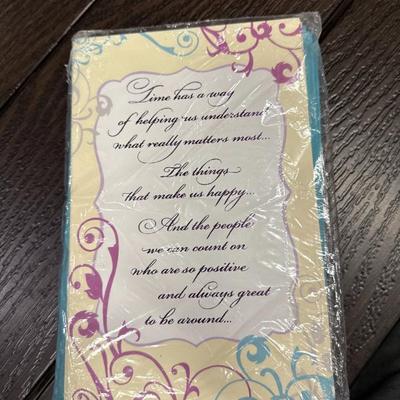 Time has a way
of helping us understand
what really matters most...
The things
that make us happy...
And the people
we can count on
who are so positive
and always great
to be around...